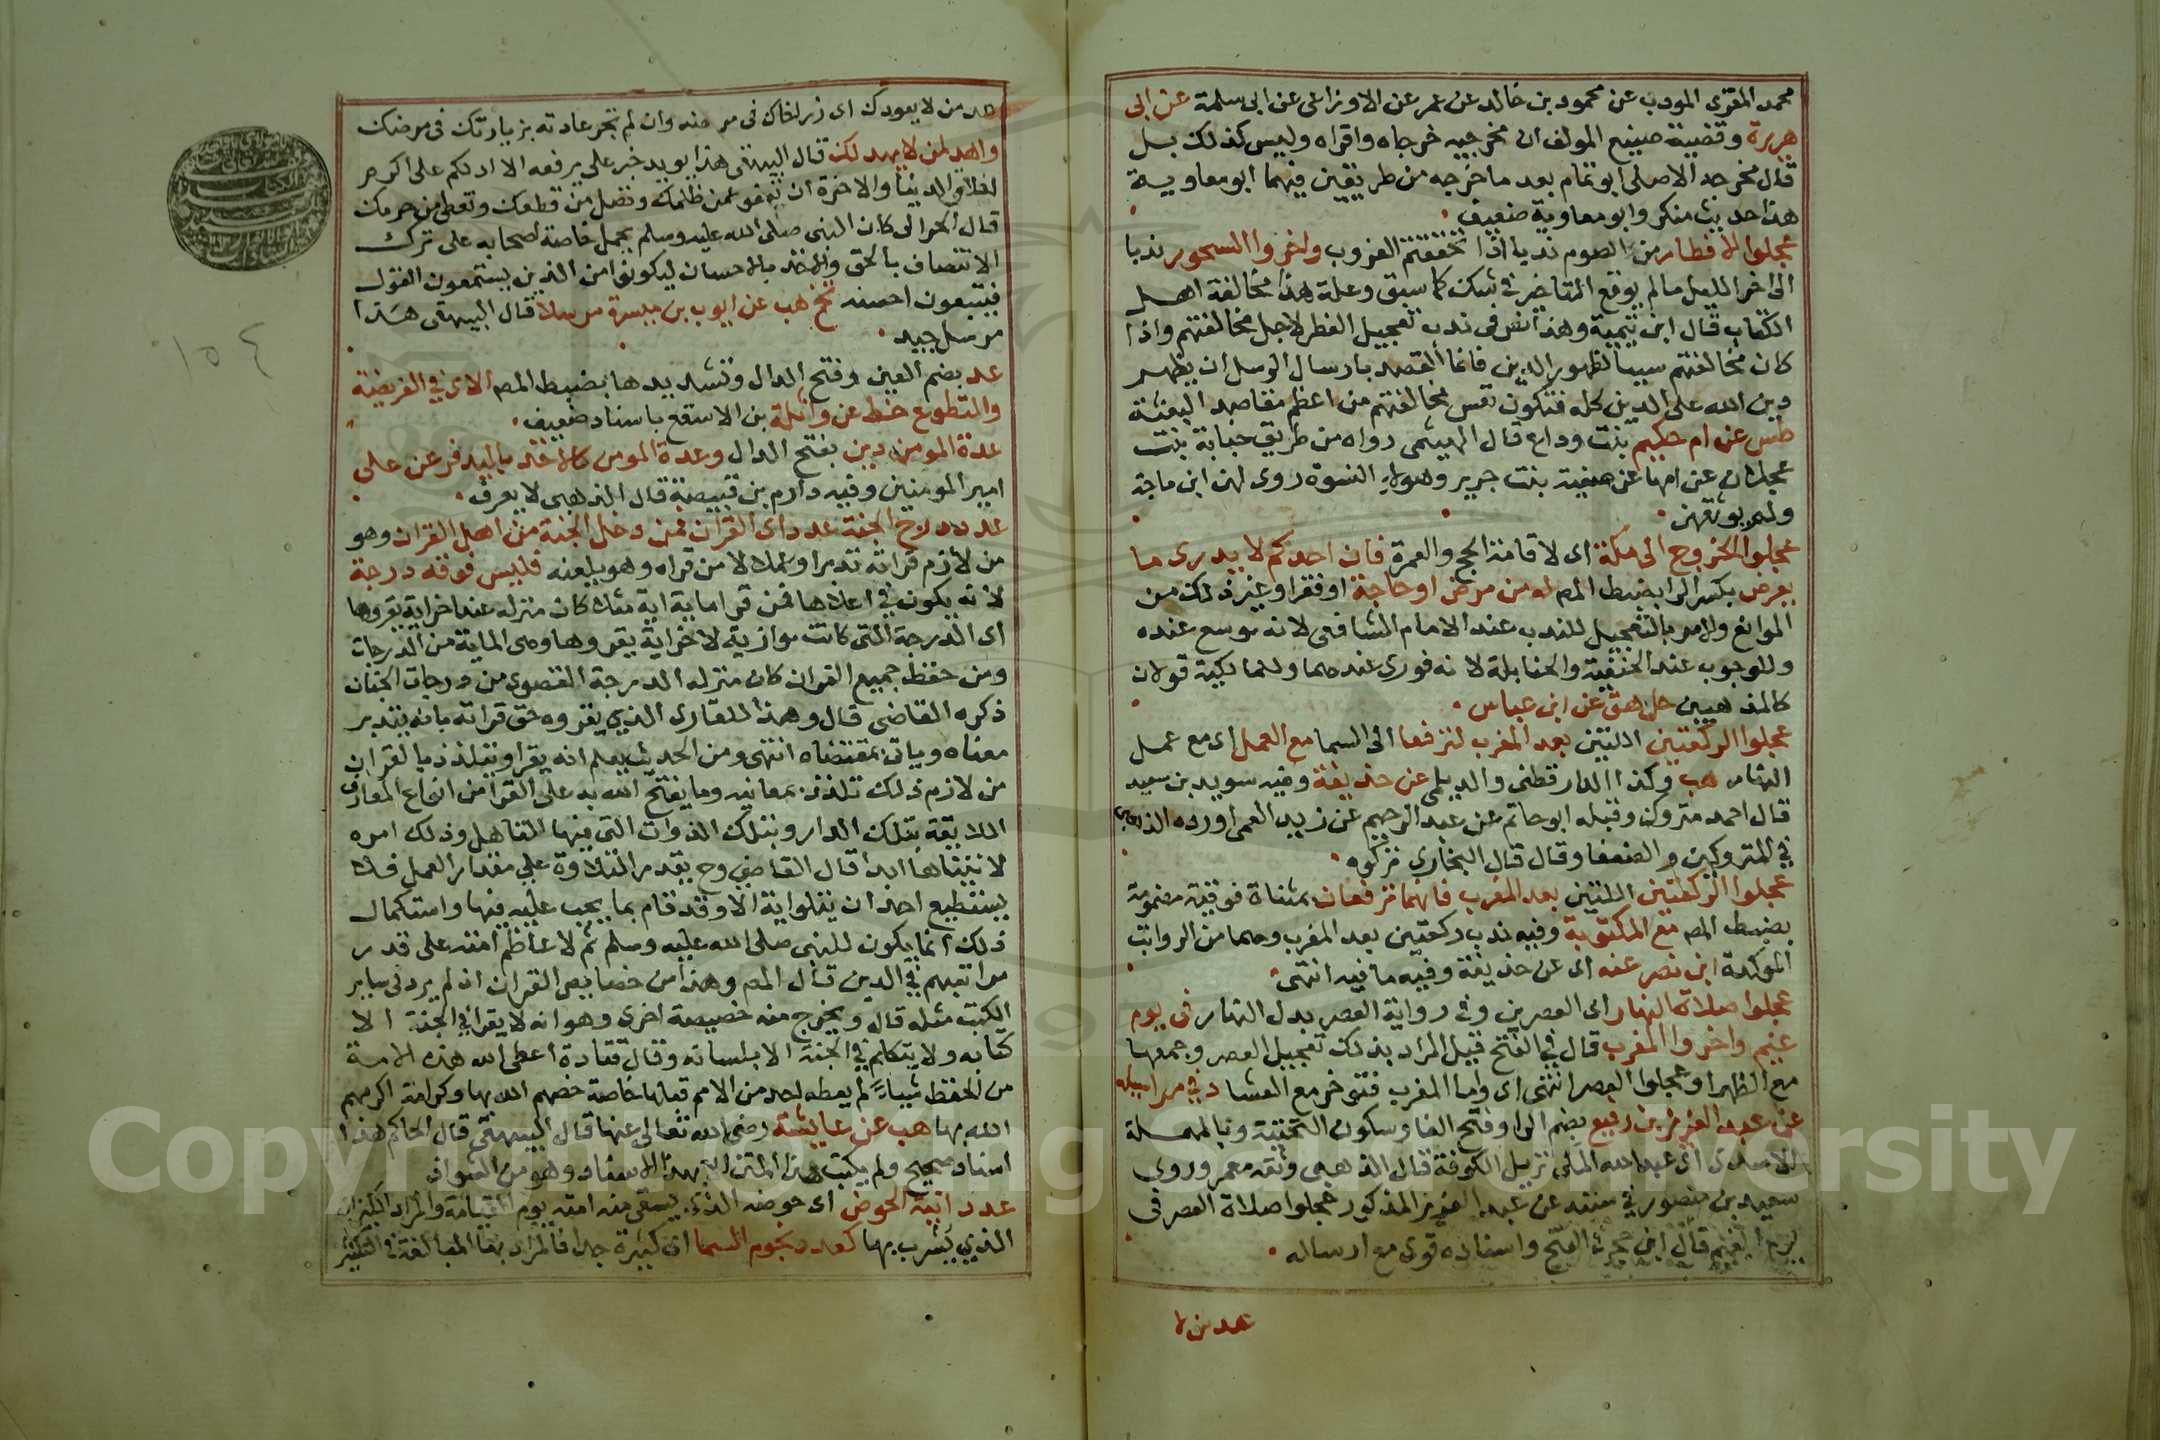 محمد المقري المودب عن محمود بن خالد عن عمر عن الاوزاعي عن ابي سلمة عن ابي
هريرة وقضية صنيع المولف ان مخرجيه خرجاه واقراه وليس كذلك بل
قال مخرجه الاصلي ابو تمام بعد ما خرجه من طريقين فيهما ابو معاوية
هذا حديث منكر وابو معاوية ضعيف
عجلوا الافطار من الصوم ندبا اذا تحققتم الغروب واخروا السحور ندبا
الى اخر الليل ما لم يوقع التاخير في شك كما سبق وعلة هذا مخالفة اهل
الكتاب قال ابن تيمية وهذا نص في ندب تعجيل الفطر لاجل مخالفتهم واذا
كان مخالفتهم سببا لظهور الدين فانما القصد بارسال الرسل ان يظهر
دين الله على الدين كله فتكون نفس مخالفتهم من اعظم مقاصد البعثة
طس عن ام حكيم بنت وداع قال الهيثمي رواه من طريق حبابة بنت
عجلان عن امها عن صفية بنت جرير وهولاء النسوة روى لهن ابن ماجة
ولم يوثقهن
عجلوا الخروج الى مكة اي لاقامة الحج والعمرة فان احدكم لا يدري ما
يعرض بكسر الرا بضبط المص له من مرض او حاجة او فقر او غير ذلك من
الموانع والامر بالتعجيل للندب عند الامام الشافعي لانه موسع عنده
وللوجوب عند الحنفية والحنابلة لانه فوري عندهما وللمالكية قولان
كالمذهبين حل هق عن ابن عباس
عجلوا الركعتين اللتين بعد المغرب لترفعا الى السما مع العمل اي مع عمل
النهار هب وكذا الدارقطني والديلمي عن حذيفة وفيه سويد بن سعيد
قال احمد متروك وقبله ابو حاتم عن عبد الرحيم عن زيد العمي اورده الذهبي
في المتروكين والضعفا وقال قال البخاري تركوه
عجلوا الركعتين اللتين بعد المغرب فانهما ترفعان بمثناة فوقية مضمومة
بضبط المص مع المكتوبة وفيه ندب ركعتين بعد المغرب وهما من الرواتب
الموكدة ابن نصر عنه اي عن حذيفة وفيه ما فيه انتهى
عجلوا صلاة النهار اي العصرين وفي رواية العصر بدل النهار في يوم
غيم واخروا المغرب قال في الفتح قيل المراد بذلك تعجيل العصر وجمعها
مع الظهر او عجلوا العصر انتهى اي واما المغرب فتوخر مع العشا د في مراسيله
عن عبد العزيز بن رفيع بضم الرا وفتح الفا وسكون التحتية وبالمهملة
الاسدي ابي عبد الله المكي نزيل الكوفة قال الذهبي وثقه معمر وروى
سعيد بن منصور في سننه عن عبد العزيز المذكور عجلوا صلاة العصر في
يوم الغيم قال ابن حجر في الفتح واسناده قوي مع ارساله
عد من لا
عد من لا يعودك اي زر اخاك في مرضه وان لم تجر عادته بزيارتك في مرضك
واهد لمن لا يهد لك قال البيهقي هذا يويد خبر علي يرفعه الا ادلكم على اكرم
اخلاق الدنيا والاخرة ان تعفو عمن ظلمك وتصل من قطعك وتعطي من حرمك
قال الحرالي كان النبي صلى الله عليه وسلم يحمل خاصة اصحابه على ترك
الانتصاف بالحق والاخذ بالاحسان ليكونوا من الذين يستمعون القول
فيتبعون احسنه تخ هب عن ايوب بن ميسرة مرسلا قال البيهقي هذا
مرسل جيد
عد بضم العين وفتح الدال وتشديدها بضبط المص الاي في الفريضة
والتطوع خط عن واثلة بن الاسقع باسناد ضعيف
عدة المومن دين بفتح الدال وعدة المومن كالاخذ باليد فر عن علي
امير المومنين وفيه دارم بن قبيصة قال الذهبي لا يعرف
عدد درج الجنة عدد اي القران فمن دخل الجنة من اهل القران وهو
من لازم قراته تدبرا وعملا لا من قراه وهو يلعنه فليس فوقه درجة
لانه يكون في اعلاها فمن قرا ماية اية مثلا كان منزله عند اخر اية يقروها
اي الدرجة التي كانت موازية لاخر اية يقروها وهي الماية من الدرجات
ومن حفظ جميع القران كان منزله الدرجة القصوى من درجات الجنان
ذكره القاضي قال وهذا للقاري الذي يقروه حق قراته بان يتدبر
معناه وياتي بمقتضاه انتهى ومن الحديث يعلم انه يقرا ويتلذذ بالقران
من لازم ذلك تلذذ بمعانيه وما يفتح الله به على القرا من انواع المعارف
اللايقة بتلك الدار وبتلك الذوات التي فيها التاهل وذلك امره
لا يتناها ابدا قال القاضي وح يقدر التلاوة على مقدار العمل فلا
يستطيع احد ان يتلو اية الا وقد قام بما يجب عليه فيها واستكمال
ذلك انما يكون للنبي صلى الله عليه وسلم ثم لاعاظم امته على قدر
مراتبهم في الدين قال المص وهذا من خصايص القران اذ لم يرد في ساير
الكتب مثله قال ويخرج منه خصيصة اخرى وهو انه لا يقرا في الجنة الا
كتابه ولا يتكلم في الجنة الا بلسانه وقال قتادة اعطى الله هذه الامة
من الحفظ شيئا لم يعطه احد من الامم قبلها خاصة خصهم الله بها وكرامة اكرمهم
الله بها هب عن عايشة رضي الله تعالى عنها قال البيهقي قال الحاكم هذا
اسناد صحيح ولم يكتب هذا المتن الا بهذا الاسناد وهو من الشواذ
عدد انية الحوض اي حوضه الذي يسقي منه امته يوم القيامة والمراد الكيزان
الذي يشرب بها كعدد نجوم السما اي كثيرة جدا فالمراد بها المبالغة في التكثير
١٥٤
Copyright © King Saud University